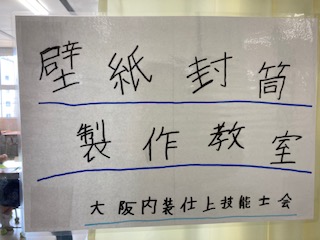 壁紙封筒
製作教室
大阪内装仕上技能士会